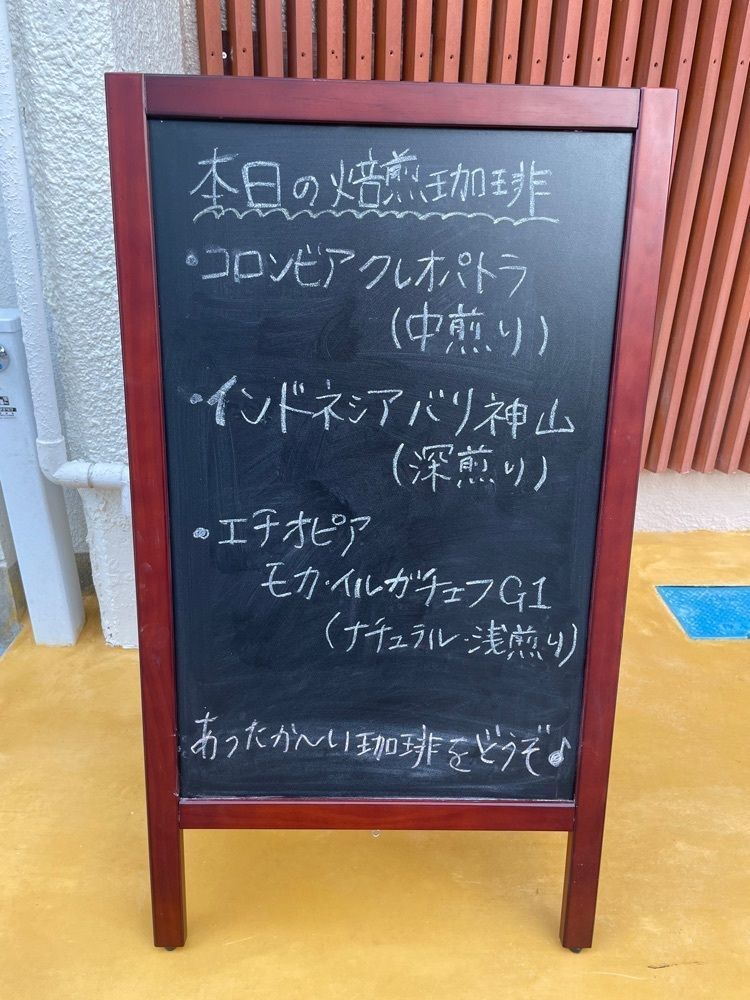 本日の焙煎珈琲
・コロンビアクレオパトラ
(中煎り)
・インドネシアバリ神山
(深煎り)
・エチオピア
モカ・イルガチェフG1
(ナチュラル・浅煎り)
あったか〜い珈琲をどうぞ♪